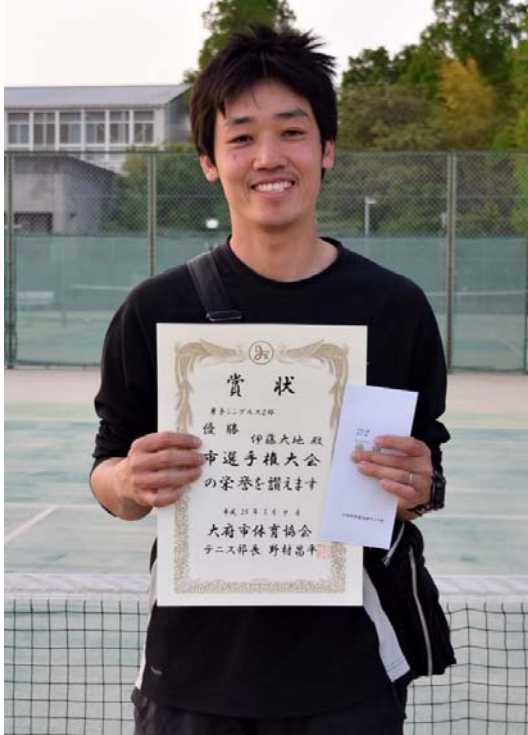 賞状
男子シングルス2部
優勝
伊藤大地 殿
市選手権大会
の栄誉を讃えます
大府市体育協会
テニス部長 野村昌平
優勝